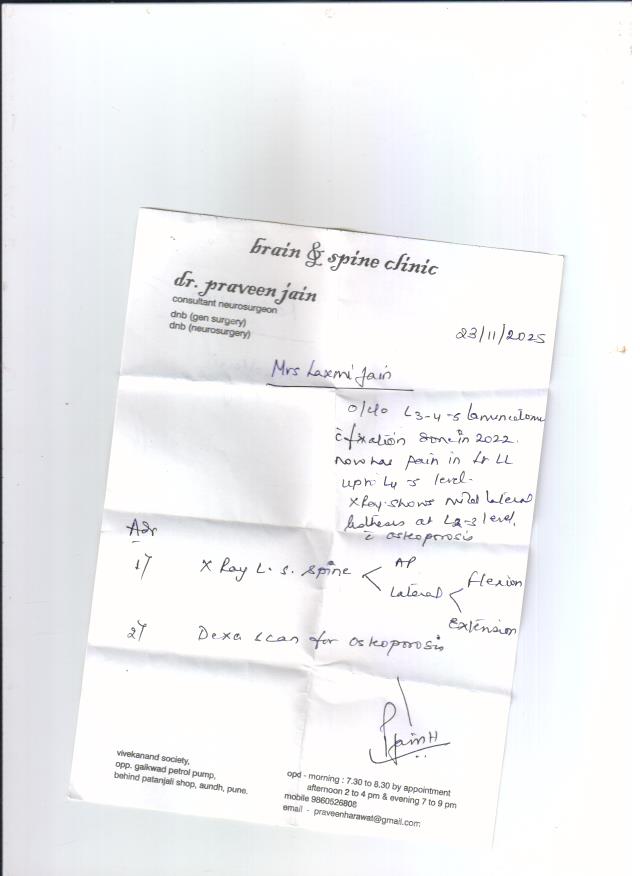 brain & spine clinic
dr. praveen jain
consultant neurosurgeon
dnb (gen surgery)
dnb (neurosurgery)
23/11/2025
Mrs Laxmi Jain
L3-4-5
fixation done in 2022.
now has pain in LL
upto L4-5 level.
X Ray shows mild lateral
listhesis at L2-3 level.
c̄ osteoporosis
Adv
1) X Ray L. S. Spine < AP
Lateral < flexion
extension
2) Dexa scan for osteoporosis
vivekanand society,
opp. gaikwad petrol pump,
behind patanjali shop, aundh, pune.
opd - morning : 7.30 to 8.30 by appointment
afternoon 2 to 4 pm & evening 7 to 9 pm
mobile 9860526808
email - praveenharawat@gmail.com